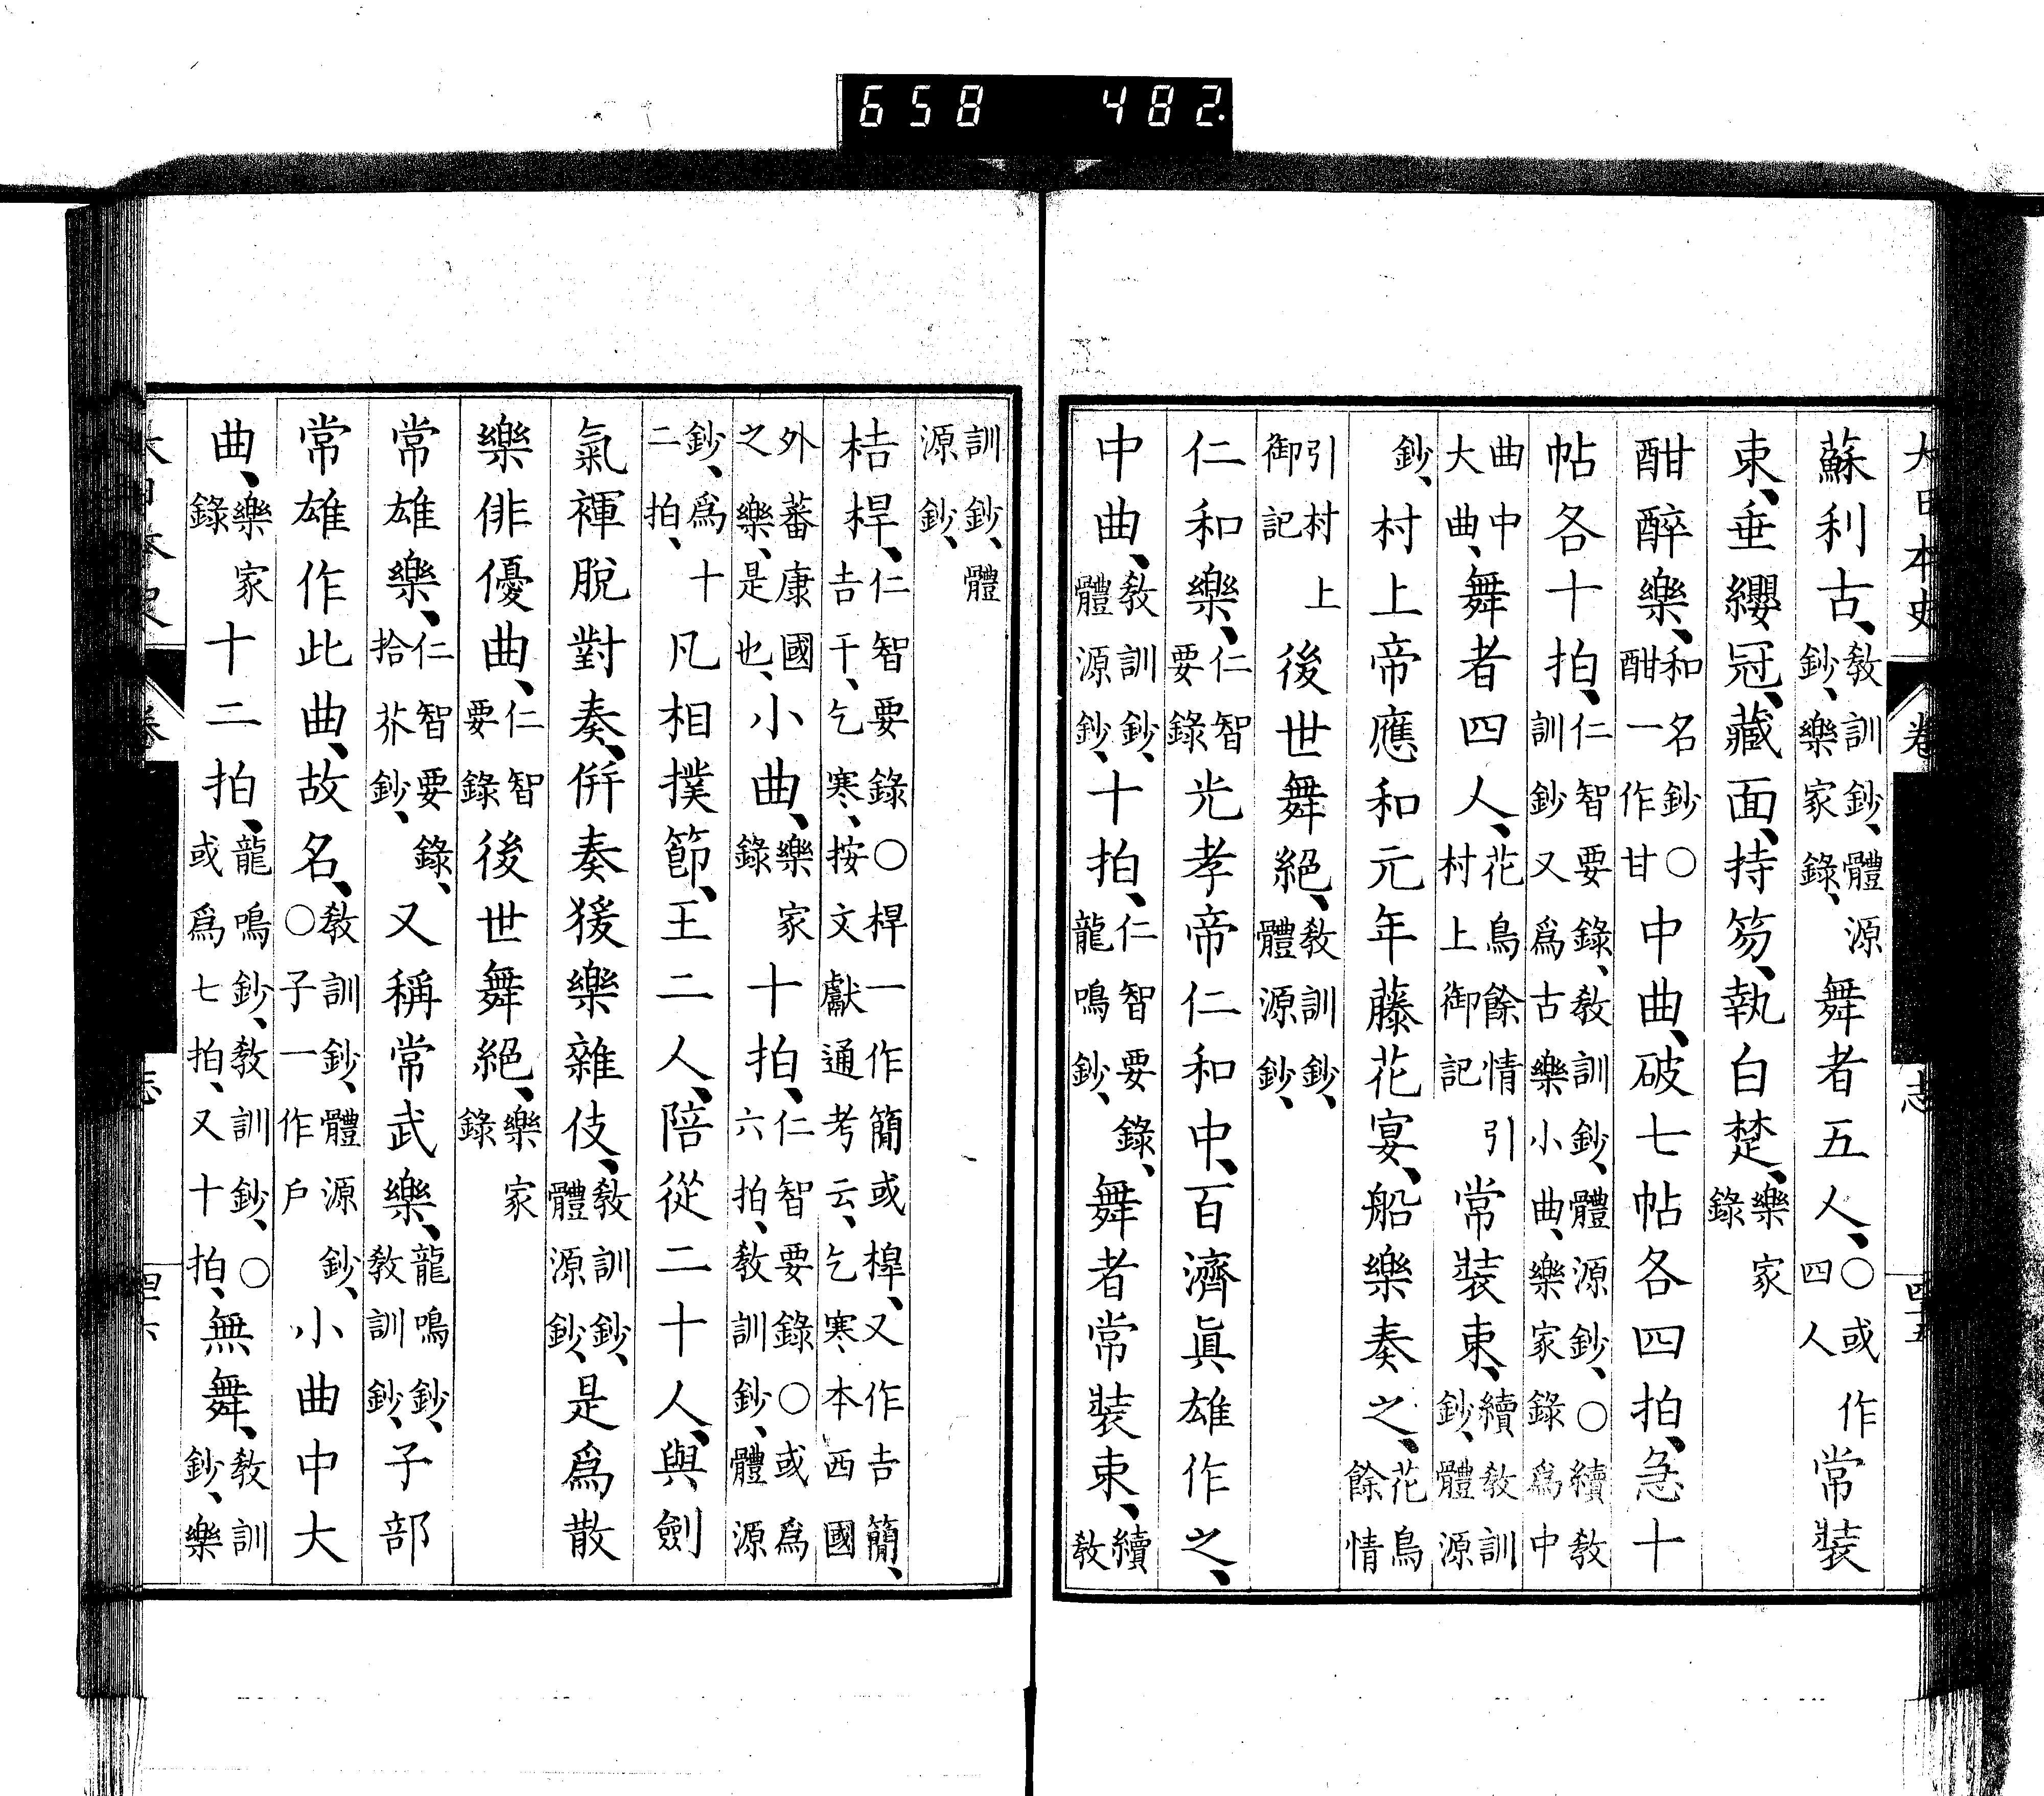 658 482
大日本史 卷 志 四五
蘇利古、教訓鈔、體源鈔、樂家錄、舞者五人、○或作四人常裝
束、垂纓冠、藏面、持笏、執白楚、樂家錄
酣醉樂、和名鈔○酣一作甘中曲、破七帖各四拍、急十
帖各十拍、仁智要錄、教訓鈔、體源鈔、○續教訓鈔又爲古樂小曲、樂家錄爲中
曲中大曲、舞者四人、花鳥餘情引村上御記常裝束、續教訓鈔、體源
鈔、村上帝應和元年藤花宴、船樂奏之、花鳥餘情
引村上御記後世舞絕、教訓鈔、體源鈔、
仁和樂、仁智要錄光孝帝仁和中、百濟眞雄作之、
中曲、教訓鈔、體源鈔、十拍、仁智要錄、龍鳴鈔、舞者常裝束、續教
訓鈔、體源鈔、
桔桿、仁智要錄○桿一作簡或槹、又作吉簡、吉干、乞寒、按文獻通考云、乞寒本西國
外蕃康國之樂、是也、小曲、樂家錄十拍、仁智要錄○或爲六拍、教訓鈔、體源
鈔、爲十二拍、凡相撲節、王二人、陪從二十人、與劍
氣褌脫對奏、併奏猨樂雜伎、教訓鈔、體源鈔、是爲散
樂俳優曲、仁智要錄後世舞絕、樂家錄
常雄樂、仁智要錄、拾芥鈔、又稱常武樂、龍鳴鈔、教訓鈔、子部
常雄作此曲、故名、教訓鈔、體源鈔、○子一作戶小曲中大
曲、樂家錄十二拍、龍鳴鈔、教訓鈔、○或爲七拍、又十拍、無舞、教訓鈔、樂